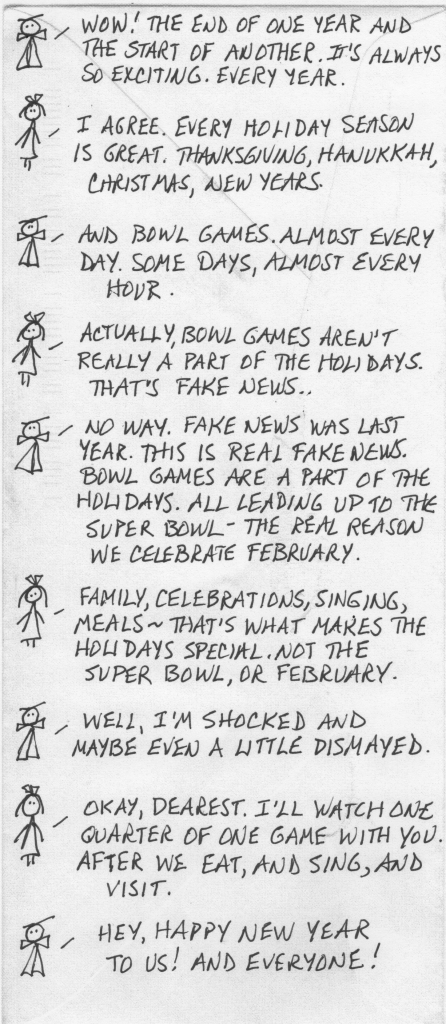 WOW! THE END OF ONE YEAR AND
THE START OF ANOTHER. IT'S ALWAYS
SO EXCITING. EVERY YEAR.
I AGREE. EVERY HOLIDAY SEASON
IS GREAT. THANKSGIVING, HANUKKAH,
CHRISTMAS, NEW YEARS.
AND BOWL GAMES. ALMOST EVERY
DAY. SOME DAYS, ALMOST EVERY
HOUR.
ACTUALLY, BOWL GAMES AREN'T
REALLY A PART OF THE HOLIDAYS.
THAT'S FAKE NEWS..
NO WAY. FAKE NEWS WAS LAST
YEAR. THIS IS REAL FAKE NEWS.
BOWL GAMES ARE A PART OF THE
HOLIDAYS. ALL LEADING UP TO THE
SUPER BOWL - THE REAL REASON
WE CELEBRATE FEBRUARY.
FAMILY, CELEBRATIONS, SINGING,
MEALS ~ THAT'S WHAT MAKES THE
HOLIDAYS SPECIAL. NOT THE
SUPER BOWL, OR FEBRUARY.
WELL, I'M SHOCKED AND
MAYBE EVEN A LITTLE DISMAYED.
OKAY, DEAREST. I'LL WATCH ONE
QUARTER OF ONE GAME WITH YOU.
AFTER WE EAT, AND SING, AND
VISIT.
HEY, HAPPY NEW YEAR
TO US! AND EVERYONE!